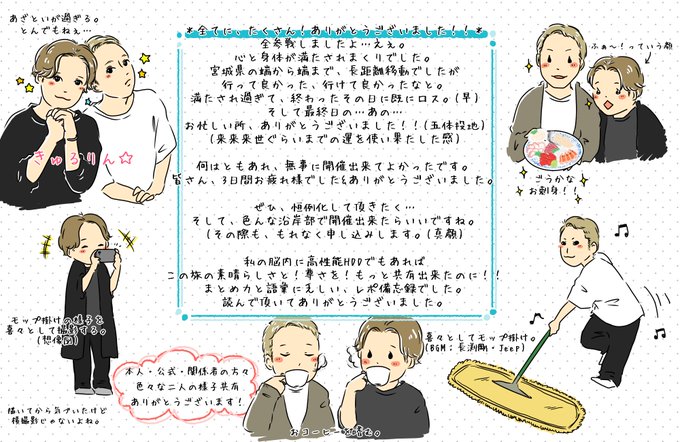 あざといが過ぎる。
とんでもねえ…
きゅるりん☆
*全てに、たくさん!ありがとうございました!!*
全参戦しましたよ…ええ。
心と身体が満たされまくりでした。
宮城県の端から端まで、長距離移動でしたが
行って良かった、行けて良かったなと。
満たされ過ぎて、終わったその日に既にロス。(早)
そして最終日の…あの…
お忙しい所、ありがとうございました!!(五体投地)
(来来来世ぐらいまでの運を使い果たした感)
何はともあれ、無事に開催出来てよかったです。
皆さん、3日間お疲れ様でした&ありがとうございました。
ぜひ、恒例化して頂きたく…
そして、色んな沿岸部で開催出来たらいいですね。
(その際も、もれなく申し込みします。(真顔)
私の脳内に高性能HDDでもあれば
この旅の素晴らしさと!尊さを!もっと共有出来たのに!!
まとめ力と語彙に乏しい、レポ備忘録でした。
読んで頂いてありがとうございました。
ふぁ〜!っていう顔
ごうかな
お刺身!!
モップ掛けの様子を
喜々として撮影する。
(想像図)
描いてから気づいたけど
横撮影じゃないよね。
本人・公式・関係者の方々
色々な二人の様子共有
ありがとうございます!
喜々としてモップ掛け。
(BGM:長渕剛・Jeep)
おコーヒーを嗜む。